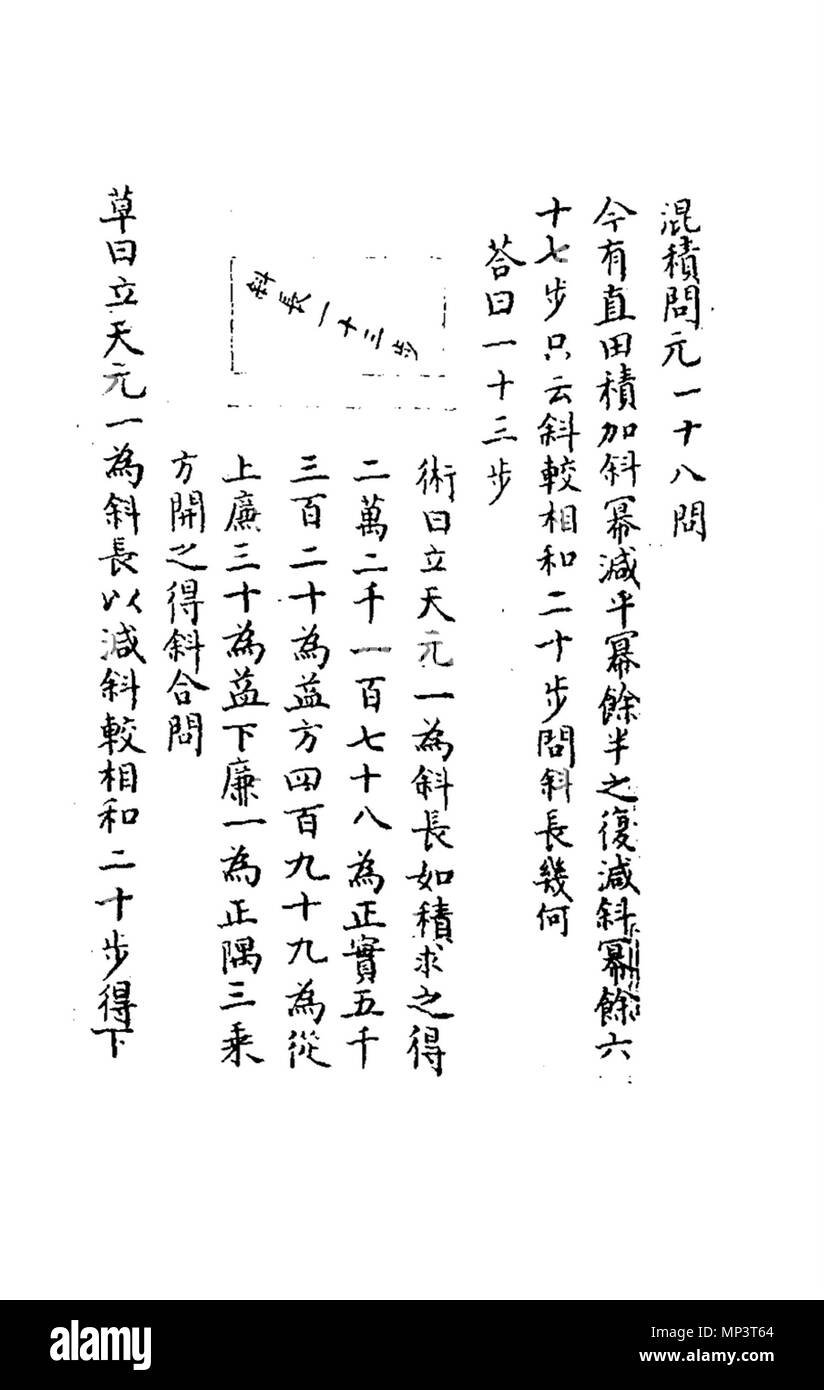 混積問元一十八問
今有直田積加斜冪減平冪餘半之復減斜冪餘六
十七步只云斜較相和二十步問斜長幾何
荅曰一十三步
斜長一十三步
術曰立天元一為斜長如積求之得
二萬二千一百七十八為正實五千
三百二十為益方四百九十九為從
上廉三十為益下廉一為正隅三乘
方開之得斜合問
草曰立天元一為斜長以減斜較相和二十步得下
a
alamy
alamy stock photo
MP3T64
www.alamy.com